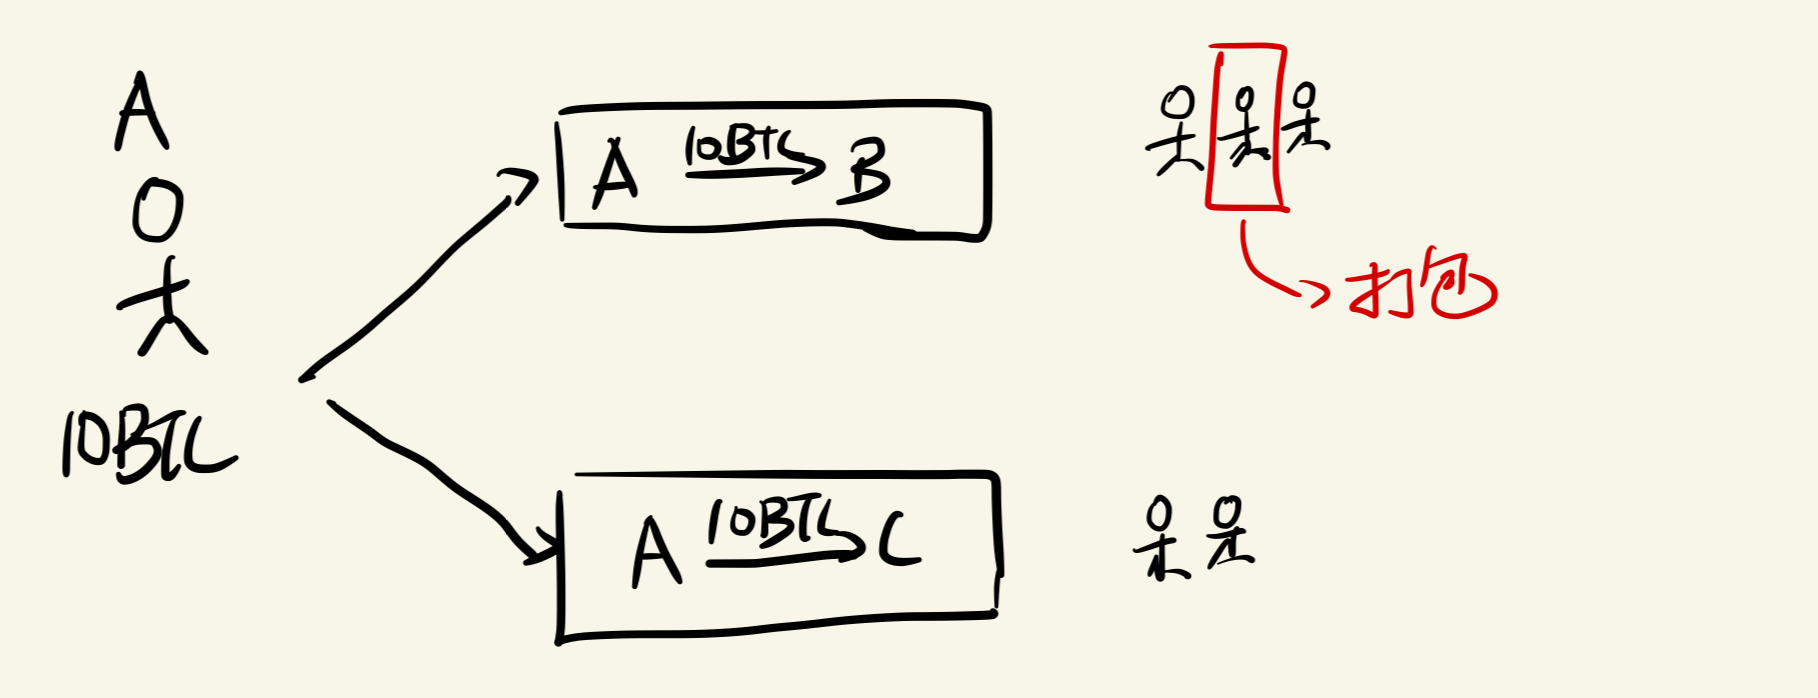 A
10BTC
A 10BTC B
打包
A 10BTC C